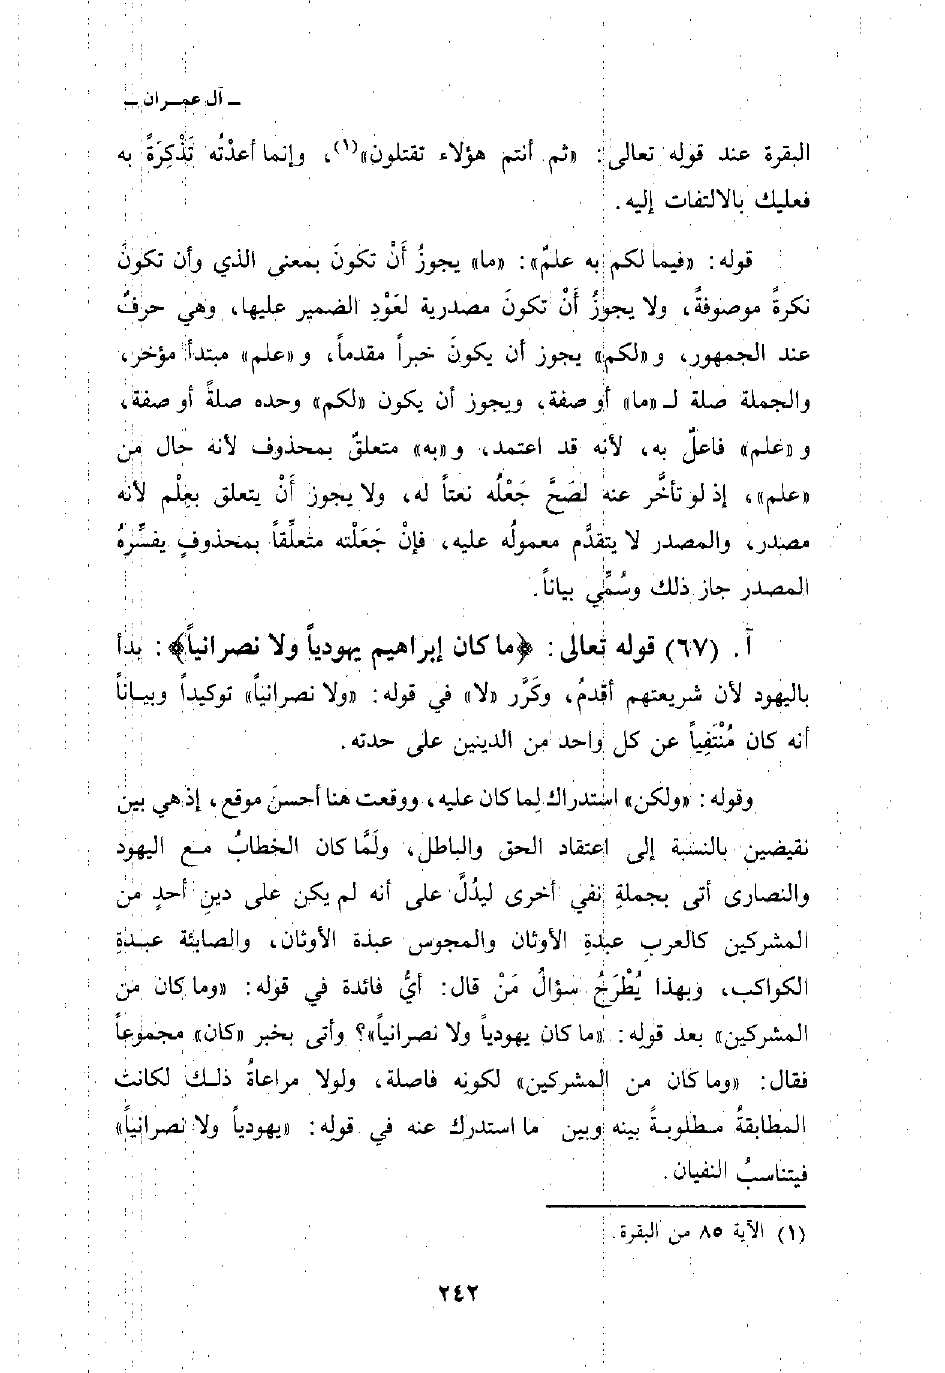 ـ آل عمـران ـ
البقرة عند قوله تعالى: «ثم أنتم هؤلاء تقتلون»(١)، وإنما أعدْتُه تَذْكِرَةً به
فعليك بالالتفات إليه.
قوله: «فيما لكم به علمٌ»: «ما» يجوزُ أَنْ تكونَ بمعنى الذي وأن تكونَ
نكرةً موصوفةً، ولا يجوزُ أَنْ تكونَ مصدرية لعَوْدِ الضمير عليها، وهي حرفٌ
عند الجمهور، و«لكم» يجوز أن يكونَ خبراً مقدماً، و«علم» مبتدأ مؤخر،
والجملة صلة لـ «ما» أو صفة، ويجوز أن يكون «لكم» وحده صلةً أو صفة،
و«علم» فاعلٌ به، لأنه قد اعتمد، و«به» متعلقٌ بمحذوف لأنه حال من
«علم»، إذ لو تأخَّر عنه لصَحَّ جَعْلُه نعتاً له، ولا يجوز أَنْ يتعلق بعِلْم لأنه
مصدر، والمصدر لا يتقدَّم معمولُه عليه، فإنْ جَعَلْته متعلِّقاً بمحذوفٍ يفسِّرُهُ
المصدر جاز ذلك وسُمِّي بياناً.
آ. (٦٧) قوله تعالى: ﴿ما كان إبراهيم يهودياً ولا نصرانياً﴾: بدأ
باليهود لأن شريعتهم أقدمُ، وكَرَّر «لا» في قوله: «ولا نصرانياً» توكيداً وبيـاناً
أنه كان مُنْتَفِياً عن كل واحد من الدينين على حدته.
وقوله: «ولكن» استدراك لما كان عليه، ووقعت هنا أحسنَ موقع، إذ هي بين
نقيضين بالنسبة إلى اعتقاد الحق والباطل، ولَمَّا كان الخطابُ مـع اليهود
والنصارى أتى بجملةِ نفي أخرى ليدُلَّ على أنه لم يكن على دينِ أحدٍ من
المشركين كالعرب عبدةِ الأوثان والمجوس عبدة الأوثان، والصابئة عبـدةِ
الكواكب، وبهذا يُطْرَحُ سؤالُ مَنْ قال: أيُّ فائدة في قوله: «وما كان من
المشركين» بعد قوله: «ما كان يهودياً ولا نصرانياً»؟ وأتى بخبر «كان» مجموعاً
فقال: «وما كان من المشركين» لكونه فاصلة، ولولا مراعاةُ ذلـك لكانت
المطابقةُ مـطلوبـةً بينه وبين ما استدرك عنه في قوله: «يهودياً ولا نصرانياً»
فيتناسبُ النفيان.
(١) الآية ٨٥ من البقرة.
٢٤٢